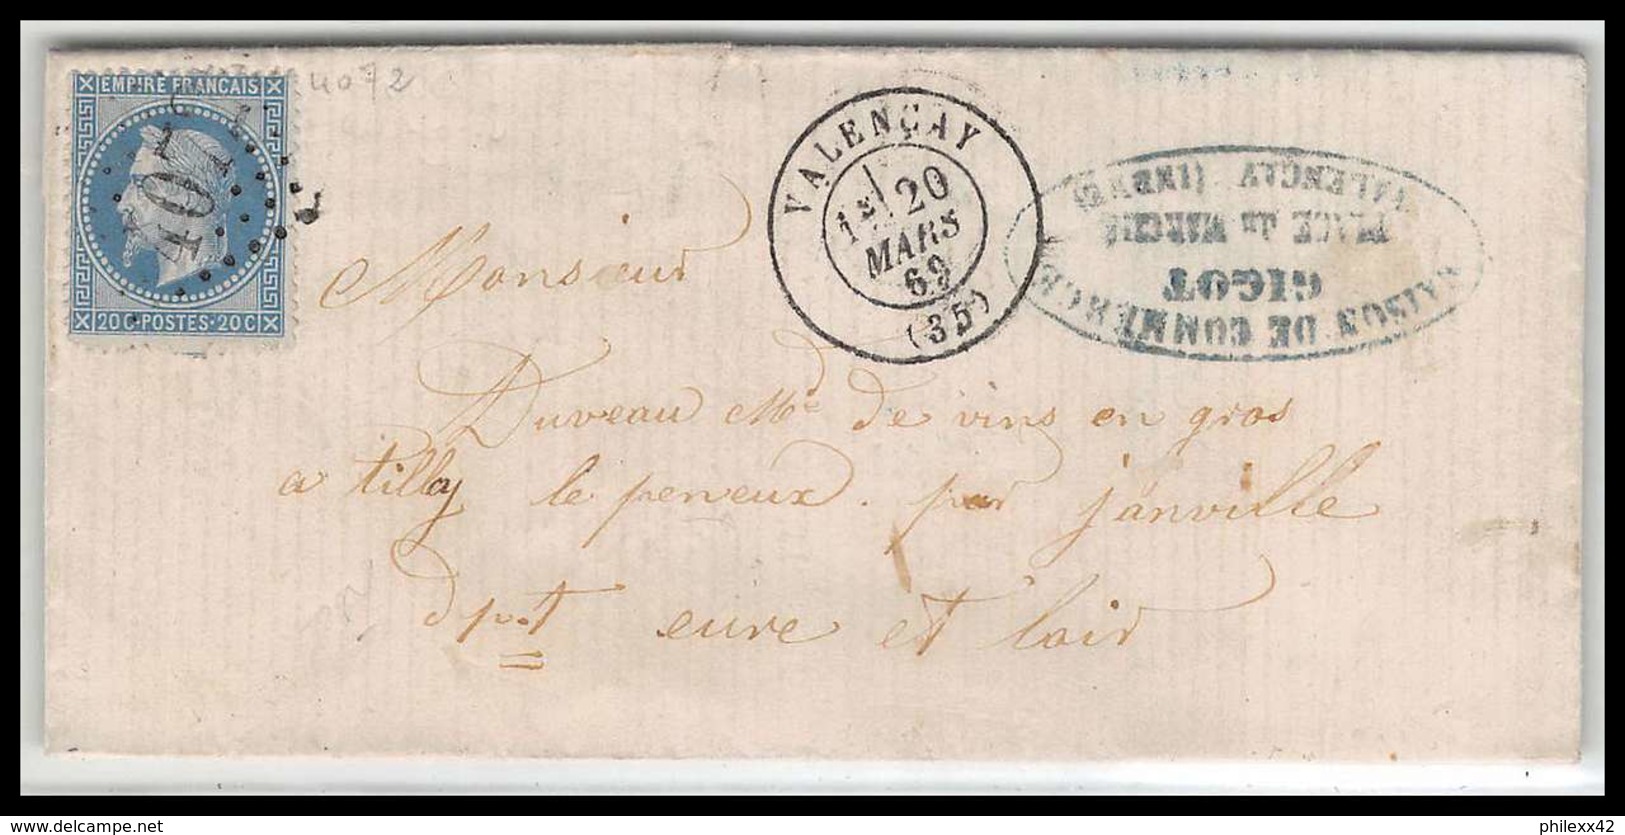 EMPIRE FRANÇAIS
4072
20C·POSTES·20C
VALENÇAY
1E 20
MARS
69
(35)
MAISON DE COMMERCE
GIGOT
PLACE du MARCHÉ
VALENÇAY (INDRE)
Monsieur
Duveau Md de vins en gros
a tilly le peneux. par janville
dpt eure et loir
delcampe.net
philexx42